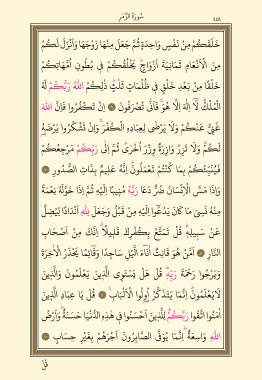 سُورَةُ الزُّمَرِ
٤٥٨
خَلَقَكُمْ مِنْ نَفْسٍ وَاحِدَةٍ ثُمَّ جَعَلَ مِنْهَا زَوْجَهَا وَاَنْزَلَ لَكُمْ
مِنَ الْاَنْعَامِ ثَمَانِيَةَ اَزْوَاجٍ يَخْلُقُكُمْ فِي بُطُونِ اُمَّهَاتِكُمْ
خَلْقًا مِنْ بَعْدِ خَلْقٍ فِي ظُلُمَاتٍ ثَلٰثٍ ذٰلِكُمُ اللّٰهُ رَبُّكُمْ لَهُ
الْمُلْكُ لَا اِلٰهَ اِلَّا هُوَ فَاَنّٰى تُصْرَفُونَ ۝ اِنْ تَكْفُرُوا فَاِنَّ اللّٰهَ
غَنِيٌّ عَنْكُمْ وَلَا يَرْضٰى لِعِبَادِهِ الْكُفْرَ وَاِنْ تَشْكُرُوا يَرْضَهُ
لَكُمْ وَلَا تَزِرُ وَازِرَةٌ وِزْرَ اُخْرٰى ثُمَّ اِلٰى رَبِّكُمْ مَرْجِعُكُمْ
فَيُنَبِّئُكُمْ بِمَا كُنْتُمْ تَعْمَلُونَ اِنَّهُ عَلِيمٌ بِذَاتِ الصُّدُورِ ۝
وَاِذَا مَسَّ الْاِنْسَانَ ضُرٌّ دَعَا رَبَّهُ مُنِيبًا اِلَيْهِ ثُمَّ اِذَا خَوَّلَهُ نِعْمَةً
مِنْهُ نَسِيَ مَا كَانَ يَدْعُوا اِلَيْهِ مِنْ قَبْلُ وَجَعَلَ لِلّٰهِ اَنْدَادًا لِيُضِلَّ
عَنْ سَبِيلِهِ قُلْ تَمَتَّعْ بِكُفْرِكَ قَلِيلًا اِنَّكَ مِنْ اَصْحَابِ
النَّارِ ۝ اَمَّنْ هُوَ قَانِتٌ اٰنَاءَ الَّيْلِ سَاجِدًا وَقَائِمًا يَحْذَرُ الْاٰخِرَةَ
وَيَرْجُوا رَحْمَةَ رَبِّهِ قُلْ هَلْ يَسْتَوِي الَّذِينَ يَعْلَمُونَ وَالَّذِينَ
لَا يَعْلَمُونَ اِنَّمَا يَتَذَكَّرُ اُولُوا الْاَلْبَابِ ۝ قُلْ يَا عِبَادِ الَّذِينَ
اٰمَنُوا اتَّقُوا رَبَّكُمْ لِلَّذِينَ اَحْسَنُوا فِي هٰذِهِ الدُّنْيَا حَسَنَةٌ وَاَرْضُ
اللّٰهِ وَاسِعَةٌ اِنَّمَا يُوَفَّى الصَّابِرُونَ اَجْرَهُمْ بِغَيْرِ حِسَابٍ ۝
قُلْ